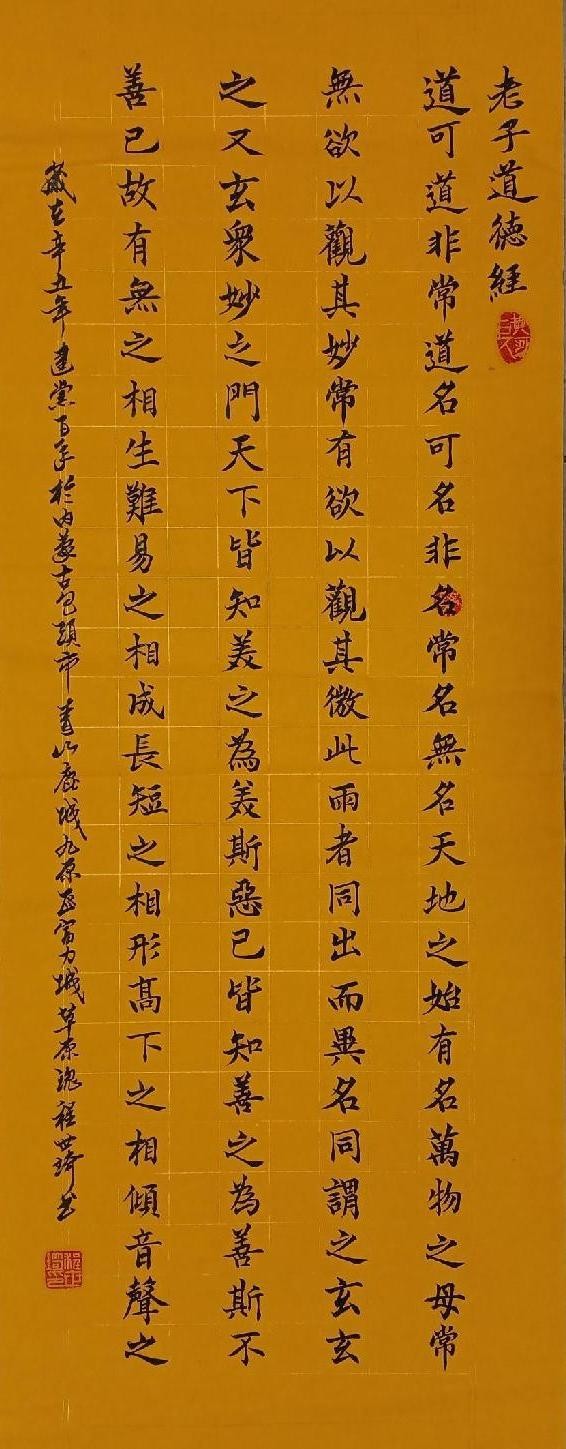 老子道德經
道可道非常道名可名非名常名無名天地之始有名萬物之母常
無欲以觀其妙常有欲以觀其徼此兩者同出而異名同謂之玄玄
之又玄衆妙之門天下皆知美之為美斯惡已皆知善之為善斯不
善已故有無之相生難易之相成長短之相形高下之相傾音聲之
歲在辛丑年建黨百年於內蒙古包頭市青山鹿城九原區富力城草原魂程世琦書